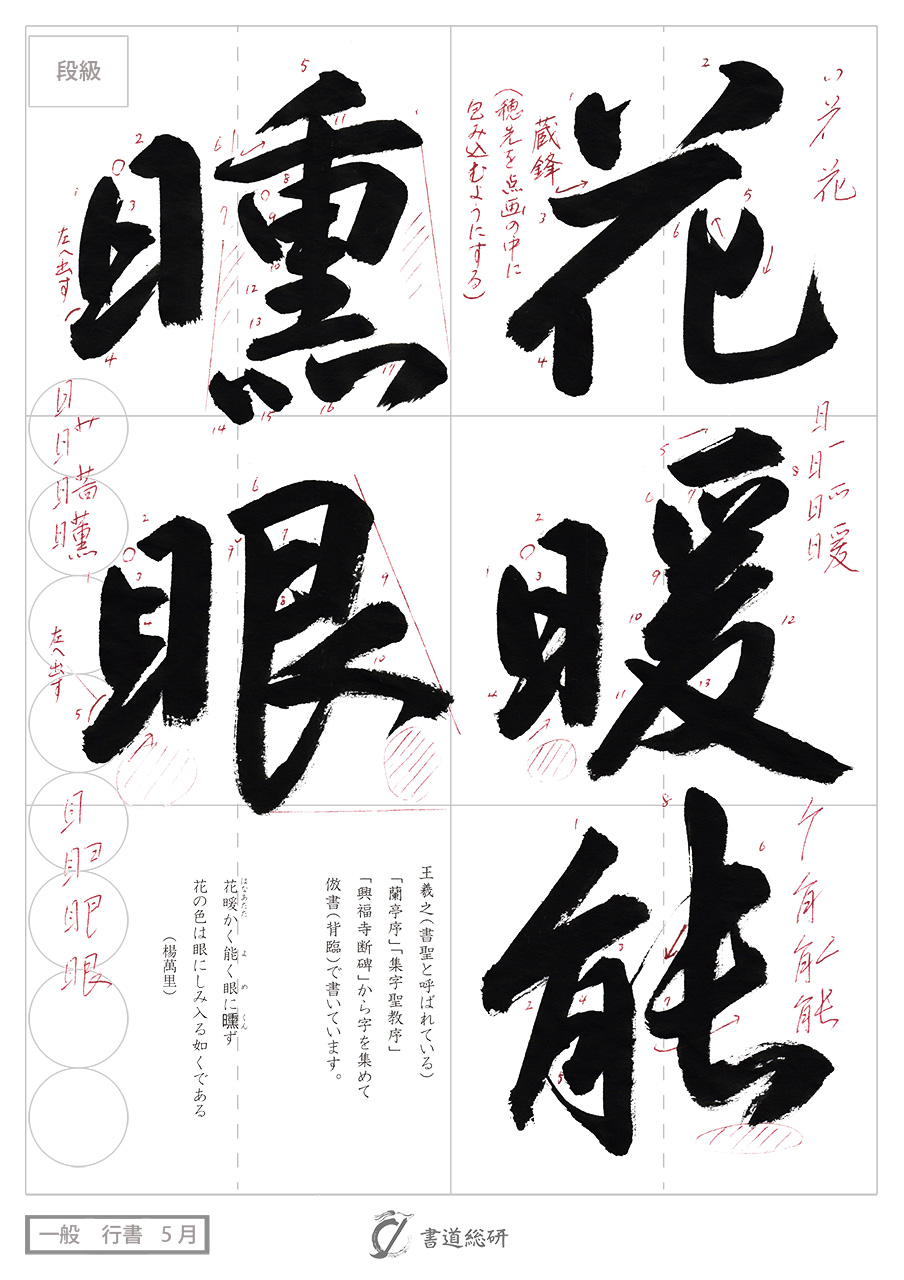 花暖能
曛眼
蔵鋒
(穂先を点画の中に
包み込むようにする)
左へ出す
左へ出す
王羲之(書聖と呼ばれている)
「蘭亭序」「集字聖教序」
「興福寺断碑」から字を集めて
倣書(背臨)で書いています。
花暖かく能く眼に曛ず
はなあたた よ め くん
花の色は眼にしみ入る如くである
(楊萬里)
段級
一般 行書 5月
書道総研